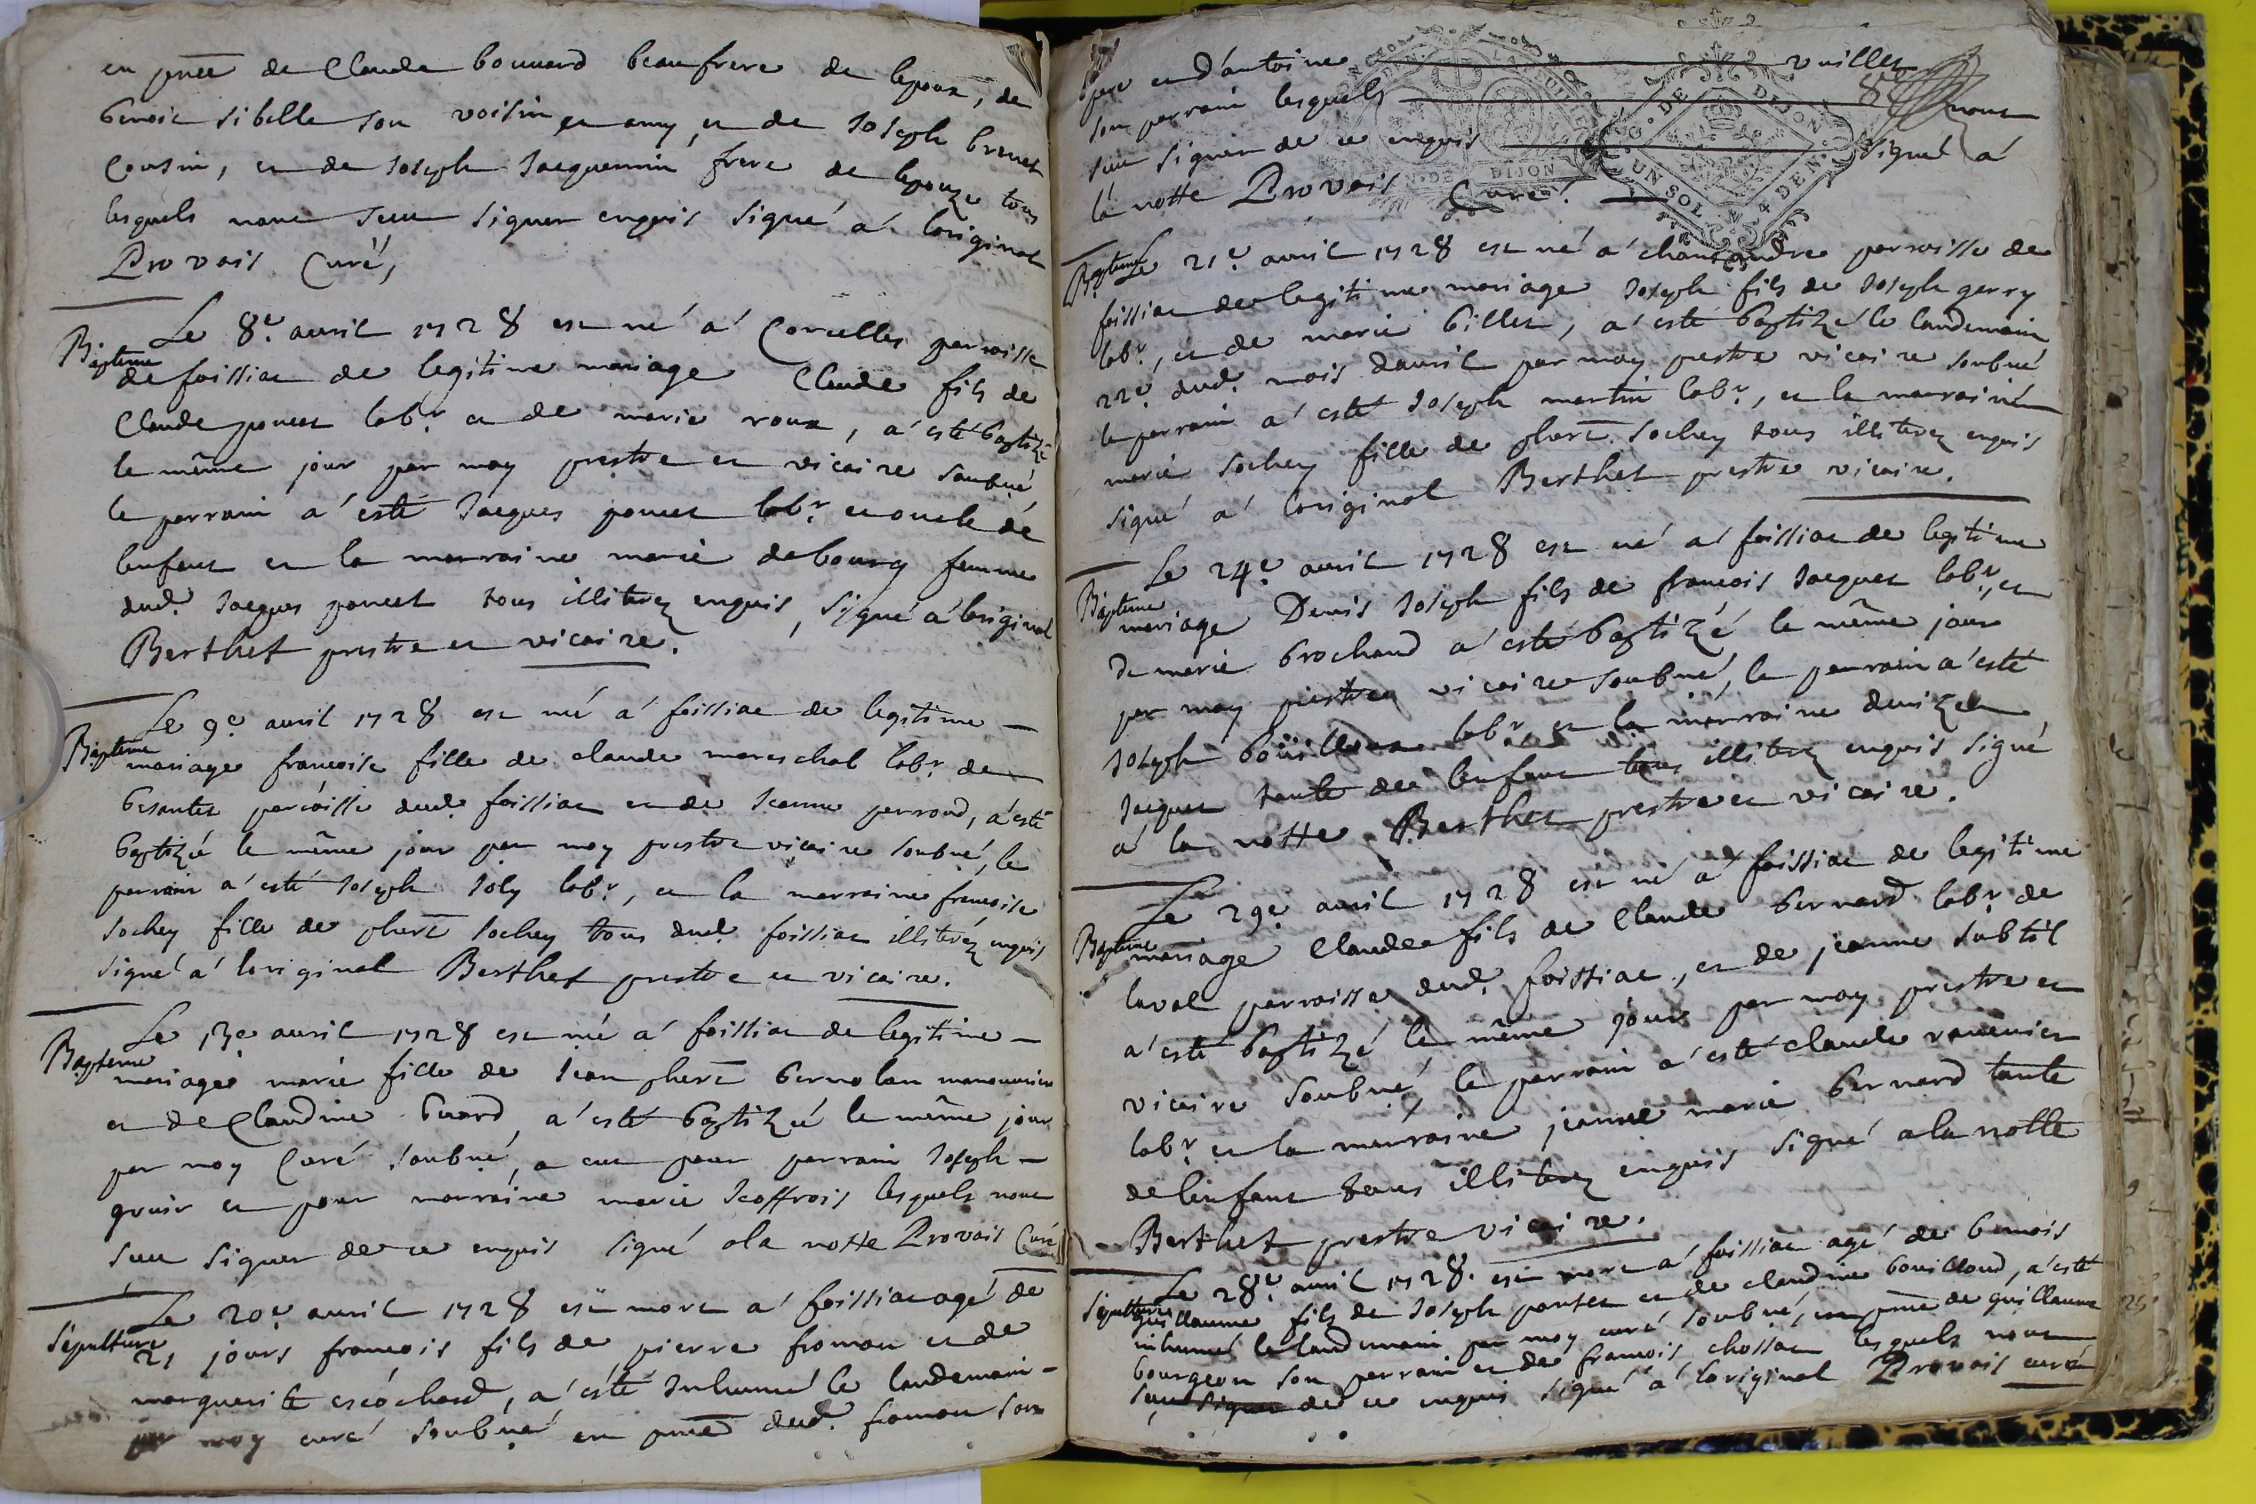 en pnce de Claude bouvard beaufrere de lepoux, de
benoit sibelle son voisin et amy, et de Joseph brevet
Cousin, et de Joseph Jacquemin frere de lepouze tous
lesquels nont sceu signer enquis signé á loriginal
Provais Curé,
Le 8e. avril 1728 est né á Corcelles parroisse
Bapteme
de foissiat de legitime mariage Claude fils de
Claude poncet labr. et de marie roux, á esté baptizé
le même jour par moy prestre et vicaire soubné
le parrain á esté Jacques poncet labr. et oncle de
lenfant et la marraine marie debourg femme
dud. Jacques poncet tous illiterez enquis, signé á loriginal
Berthet prestre et vicaire.
Le 9e avril 1728 est né á foissiat de legitime
Bapteme
mariage francoise fille de claude mareschal labr. de
besantet parroisse dud. foissiat et de Jeanne perroud, á esté
baptizé le même jour par moy prestre vicaire soubné, le
parrain á esté Joseph Joly labr., et la marraine francoise
Jochey fille de phert Jochey tous dud. foissiat illiterez enquis
signé á loriginal Berthet prestre et vicaire.
Le 13e avril 1728 est né á foissiat de legitime
Bapteme
mariage marie fille de Jean phert bernolan manouvrier
et de Claudine buard, á esté baptizé le même jour
par moy Curé soubné, a eut pour parrain Joseph
gruir et pour marraine marie Jeoffrois lesquels nont
sceu signer de ce enquis signé ala notte Provais Curé
Le 20e. avril 1728 est mort á foissiat agé de
Sepulture
21 jours francois fils de pierre fromont et de
marguerite escochard, á esté Inhumé le landemain
par moy curé soubné en pnce dud. fromont son
pere et d'antoine vuillet
son parrain lesquels nont
sceu signer de ce enquis signé á
la notte Provais Curé.
G. DE DIJON
UN SOL 4 DEN.
Le 21e. avril 1728 est né á chantandre parroisse de
Bapteme
foissiat de legitime mariage Joseph fils de Joseph gerry
labr., et de marie billet, á esté baptizé le landemain
22e. dud. mois davril par moy prestre vicaire soubné
le parrain á esté Joseph martin labr., et la marraine
marie Jochey fille de phert. Jochey tous illiterez enquis
signé á loriginal Berthet prestre vicaire.
Le 24e. avril 1728 est né á foissiat de legitime
Bapteme
mariage Denis Joseph fils de francois Jacquet labr. et
de marie brochand á esté baptizé le même jour
par moy prestre vicaire soubné, le parrain á esté
Joseph boüilloux labr. et la marraine denize
Jacquet tante de lenfant tous illiterez enquis signé
á la notte Berthet prestre et vicaire.
Le 29e avril 1728 est né á foissiat de legitime
Bapteme
mariage Claude fils de Claude bernard labr. de
laval parroisse dud. foissiat, et de jeanne subtil
á esté baptizé le même jour par moy prestre et
vicaire soubné, le parrain á esté claude ravenier
labr. et la marraine jeanne marie bernard tante
de lenfant tous illiterez enquis signé ala notte
Berthet prestre vicaire.
Le 28e. avril 1728. est mort á foissiat agé de 6 mois
Sepulture
guillaume fils de Joseph ponset et de claudine bouilloud, á esté
inhumé le landemain par moy curé soubné, en pnce de guillaume
bourgeon son parrain et de francois chossat lesquels nont
sceu signer de ce enquis signé á loriginal Provais curé